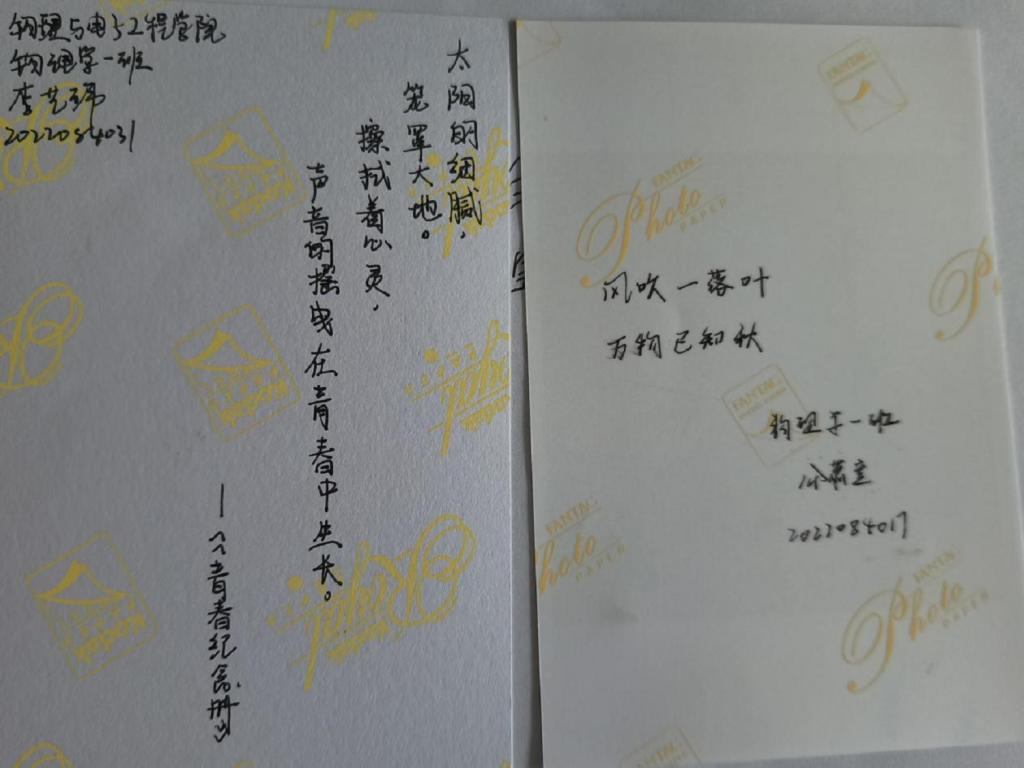 物理与电子工程学院
物理学一班
李艺玮
2022084031
太阳的细腻，
笼罩大地。
擦拭着心灵，
声音的摇曳在青春中生长。
—《青春纪念册》
Kodak
Royal
FANTAC
Photo
PAPER
风吹一落叶
万物已知秋
FANTAC
物理学一班
2022084017
FANTAC
Photo
PAPER
FANTAC
Photo
PAPER